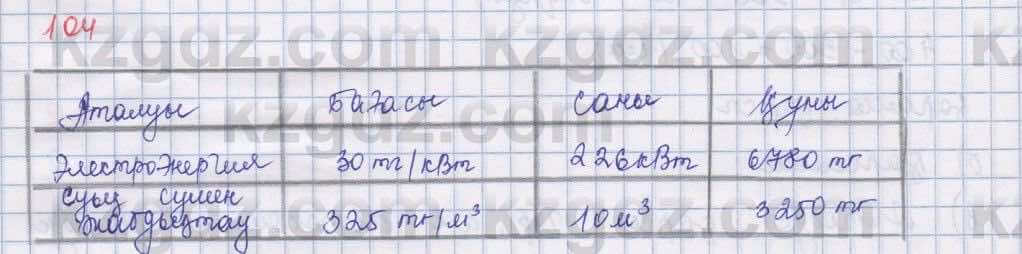 104
Аталуы Бағасы Саны Құны
Электроэнергия 30 тг/кВт 226 кВт 6780 тг
Суық сумен
жабдықтау 325 тг/м³ 10 м³ 3250 тг
kzgdz.com
kzgdz.com